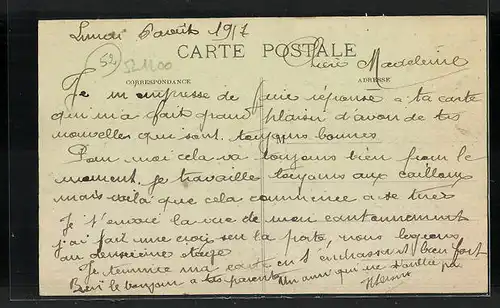 Lundi 6 août 1917
52
521100
CARTE POSTALE
Chère Madeleine
CORRESPONDANCE
ADRESSE
Je m empresse de faire réponse a ta carte
qui m'a fait grand plaisir d'avoir de tes
nouvelles qui sont toujours bonnes
M
Pour moi cela va toujours bien pour le
moment, je travaille toujours aux cailloux
mais voilà que cela commence a se tirer
Je t'envoie la vue de mon cantonnement
j'ai fait une croix sur la porte, nous logeons
au deuxième étage
Je termine ma carte en t'embrassant bien fort
Bien le bonjour a tes parents Un ami qui ne t'oublie pas